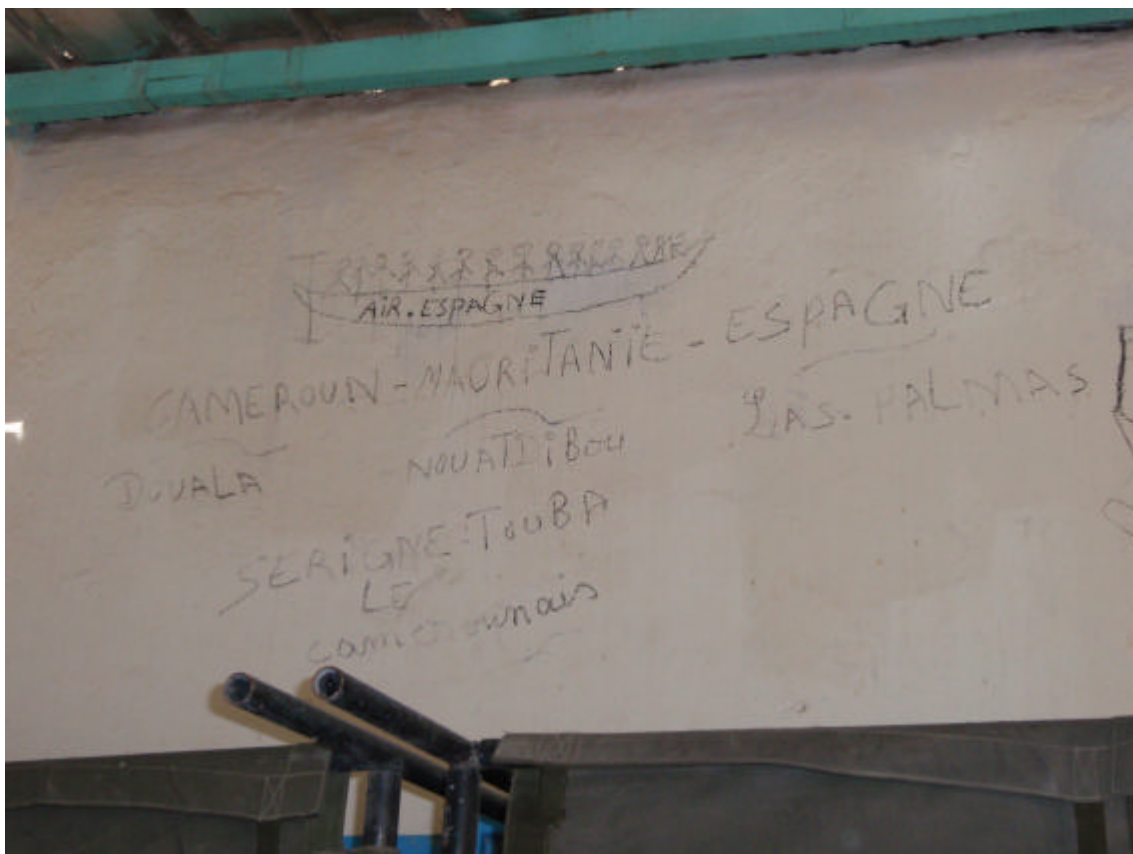 AIR.ESPAGNE
CAMEROUN-MAURITANIE-ESPAGNE
DOUALA NOUATDIBOU LAS-PALMAS
SERIGNE-TOUBA
LE
camerounais